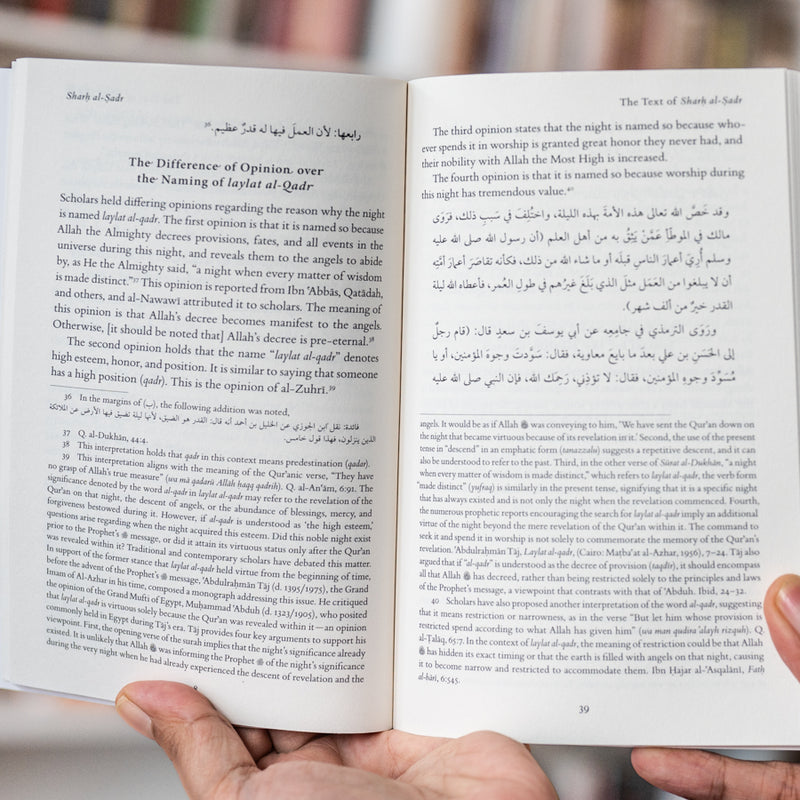 Sharḥ al-Ṣadr
رابعها: لأن العملَ فيها له قدرٌ عظيم.³⁶
The Difference of Opinion over
the Naming of laylat al-Qadr
Scholars held differing opinions regarding the reason why the night
is named laylat al-qadr. The first opinion is that it is named so because
Allah the Almighty decrees provisions, fates, and all events in the
universe during this night, and reveals them to the angels to abide
by, as He the Almighty said, “a night when every matter of wisdom
is made distinct.”³⁷ This opinion is reported from Ibn ʿAbbās, Qatādah,
and others, and al-Nawawī attributed it to scholars. The meaning of
this opinion is that Allah’s decree becomes manifest to the angels.
Otherwise, [it should be noted that] Allah’s decree is pre-eternal.³⁸
The second opinion holds that the name “laylat al-qadr” denotes
high esteem, honor, and position. It is similar to saying that someone
has a high position (qadr). This is the opinion of al-Zuhrī.³⁹
36 In the margins of (ب), the following addition was noted,
فائدة: نقل ابن الجوزي عن الخليل بن أحمد أنه قال: القدر هو الضيق، لأنها ليلة تضيق فيها الأرض عن الملائكة
الذين ينزلون، فهذا قول خامس.
37 Q. al-Dukhān, 44:4.
38 This interpretation holds that qadr in this context means predestination (qadar).
39 This interpretation aligns with the meaning of the Qurʾanic verse, “They have
no grasp of Allah’s true measure” (wa mā qadarū Allāh ḥaqq qadrih). Q. al-Anʿām, 6:91. The
significance denoted by the word al-qadr in laylat al-qadr may refer to the revelation of the
Qurʾan on that night, the descent of angels, or the abundance of blessings, mercy, and
forgiveness bestowed during it. However, if al-qadr is understood as ‘the high esteem,’
questions arise regarding when the night acquired this esteem. Did this noble night exist
prior to the Prophet’s ﷺ message, or did it attain its virtuous status only after the Qurʾan
was revealed within it? Traditional and contemporary scholars have debated this matter.
In support of the former stance that laylat al-qadr held virtue from the beginning of time,
before the advent of the Prophet’s ﷺ message, ʿAbdulraḥmān Tāj (d. 1395/1975), the Grand
Imam of Al-Azhar in his time, composed a monograph addressing this issue. He critiqued
the opinion of the Grand Mufti of Egypt, Muḥammad ʿAbduh (d. 1323/1905), who posited
that laylat al-qadr is virtuous solely because the Qurʾan was revealed within it — an opinion
commonly held in Egypt during Tāj’s era. Tāj provides four key arguments to support his
viewpoint. First, the opening verse of the surah implies that the night’s significance already
existed. It is unlikely that Allah was informing the Prophet ﷺ of the night’s significance
during the very night when he had already experienced the descent of revelation and the
The Text of Sharḥ al-Ṣadr
The third opinion states that the night is named so because who-
ever spends it in worship is granted great honor they never had, and
their nobility with Allah the Most High is increased.
The fourth opinion is that it is named so because worship during
this night has tremendous value.⁴⁰
وقد خَصَّ الله تعالى هذه الأمةَ بهذه الليلة، واختُلِفَ في سَببِ ذلك، فرَوَى
مالك في الموطَّأ عَمَّنْ يَثِقُ به من أهل العلم (أن رسول الله صلى الله عليه
وسلم أُرِيَ أعمارَ الناسِ قبلَه أو ما شاء الله من ذلك، فكأنه تقاصَرَ أعمارَ أمَّتِه
أن لا يبلغوا من العَمَل مثلَ الذي بَلَغَ غيرُهم في طولِ العُمر، فأعطاه الله ليلة
القدر خيرٌ من ألف شهر).
ورَوَى الترمذي في جامِعِه عن أبي يوسفَ بن سعدٍ قال: (قام رجلٌ
إلى الحَسَنِ بن علي بعدَ ما بايعَ معاوية، فقال: سَوَّدتَ وجوهَ المؤمنين، أو يا
مُسَوِّدَ وجوهِ المؤمنين، فقال: لا تؤذِني، رَحِمَكَ الله، فإن النبي صلى الله عليه
angels. It would be as if Allah was conveying to him, ‘We have sent the Qurʾan down on
the night that became virtuous because of its revelation in it.’ Second, the use of the present
tense in “descend” in an emphatic form (tanazzalu) suggests a repetitive descent, and it can
also be understood to refer to the past. Third, in the other verse of Sūrat al-Dukhān, “a night
when every matter of wisdom is made distinct,” which refers to laylat al-qadr, the verb form
“made distinct” (yufraq) is similarly in the present tense, signifying that it is a specific night
that has always existed and is not only the night when the revelation commenced. Fourth,
the numerous prophetic reports encouraging the search for laylat al-qadr imply an additional
virtue of the night beyond the mere revelation of the Qurʾan within it. The command to
seek it and spend it in worship is not solely to commemorate the memory of the Qurʾan’s
revelation. ʿAbdulraḥmān Tāj, Laylat al-qadr, (Cairo: Maṭbaʿat al-Azhar, 1956), 7–24. Tāj also
argued that if “al-qadr” is understood as the decree of provision (taqdīr), it should encompass
all that Allah has decreed, rather than being restricted solely to the principles and laws
of the Prophet’s message, a viewpoint that contrasts with that of ʿAbduh. Ibid, 24–32.
40 Scholars have also proposed another interpretation of the word al-qadr, suggesting
that it means restriction or narrowness, as in the verse “But let him whose provision is
restricted spend according to what Allah has given him” (wa man qudira ʿalayh rizquh). Q.
al-Ṭalāq, 65:7. In the context of laylat al-qadr, the meaning of restriction could be that Allah
has hidden its exact timing or that the earth is filled with angels on that night, causing
it to become narrow and restricted to accommodate them. Ibn Ḥajar al-ʿAsqalānī, Fatḥ
al-bārī, 6:545.
39